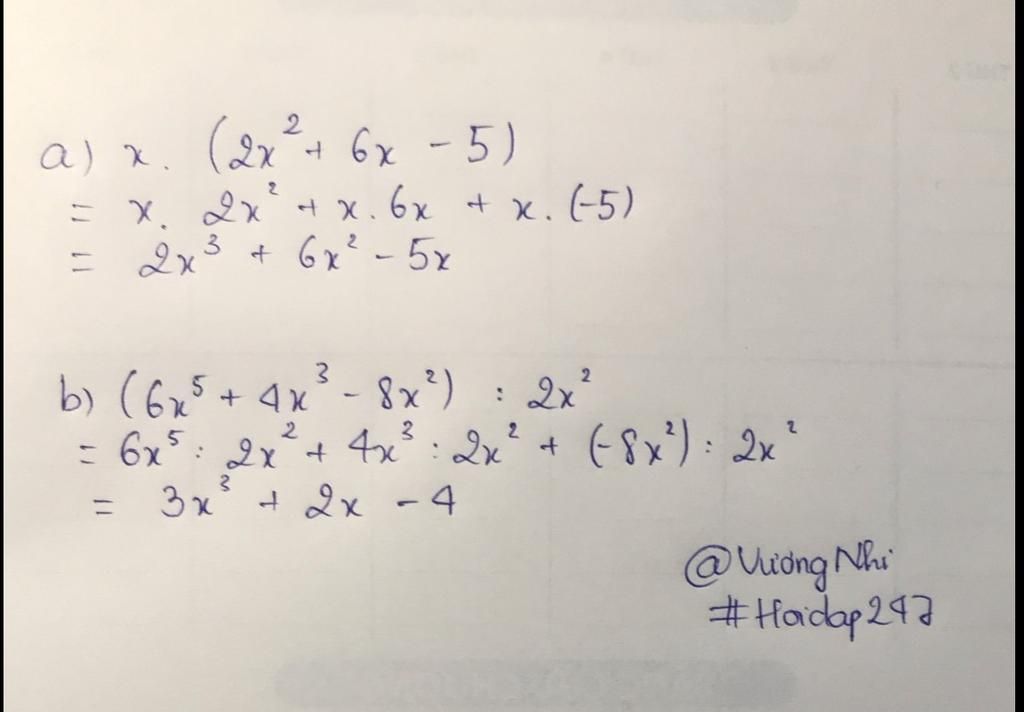 a) x. (2x² + 6x - 5)
= x. 2x² + x. 6x + x. (-5)
= 2x³ + 6x² - 5x
b) (6x⁵ + 4x³ - 8x²) : 2x²
= 6x⁵ : 2x² + 4x³ : 2x² + (-8x²) : 2x²
= 3x³ + 2x - 4
@Vương Nhi
#Hoidap247